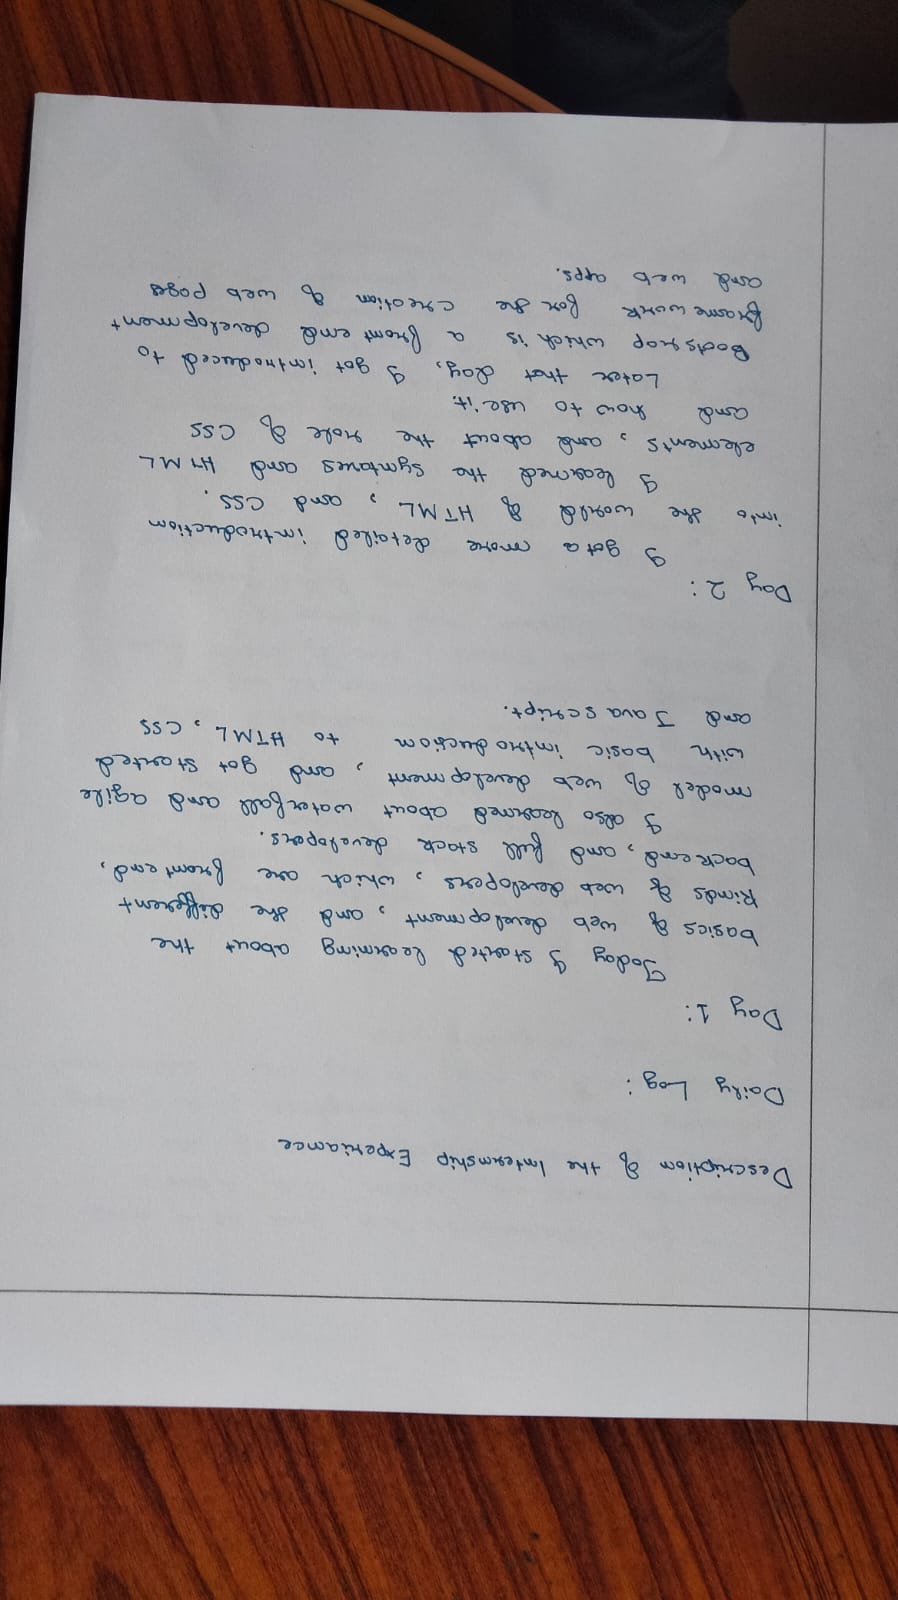 Description of the Internship Experiance
Daily Log:
Day 1:
Today I started learning about the
basics of web development, and the different
kinds of web developers, which are front end,
back end, and full stack developers.
I also learned about waterfall and agile
model of web development, and got started
with basic introduction to HTML, CSS
and Java script.
Day 2:
I got a more detailed introduction
into the world of HTML, and CSS.
I learned the syntaxes and HTML
elements, and about the role of CSS
and how to use it.
Later that day, I got introduced to
Bootstrap which is a front end development
frame work for the creation of web pages
and web apps.